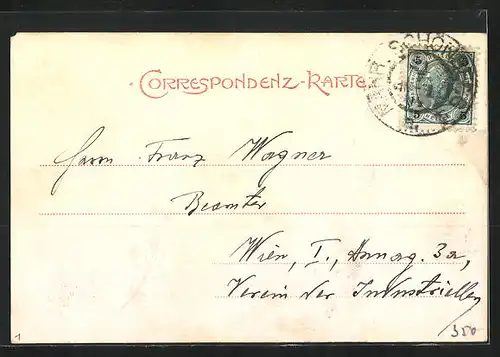 CORRESPONDENZ-KARTE
Herrn Franz Wagner
Beamter
Wien, I., Annag. 3a,
Verein der Industriellen
350
1